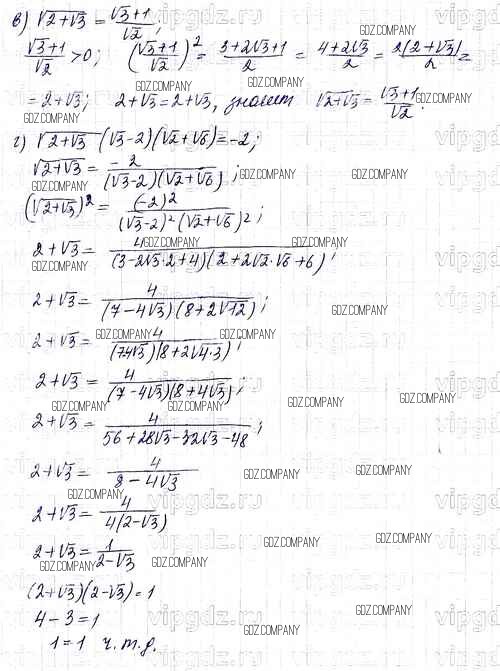 в) √(2+√3) = (√3+1)/√2;
(√3+1)/√2 > 0; ((√3+1)/√2)² = (3+2√3+1)/2 = (4+2√3)/2 = 2(2+√3)/2 =
= 2+√3; 2+√3 = 2+√3, значит √(2+√3) = (√3+1)/√2.
г) √(2+√3) (√3-2)(√2+√6) = -2;
√(2+√3) = -2/((√3-2)(√2+√6));
(√(2+√3))² = (-2)²/((√3-2)²(√2+√6)²);
2+√3 = 4/((3-2√3·2+4)(2+2√2·√6+6));
2+√3 = 4/((7-4√3)(8+2√12));
2+√3 = 4/((7-4√3)(8+2√4·3));
2+√3 = 4/((7-4√3)(8+4√3));
2+√3 = 4/(56+28√3-32√3-48);
2+√3 = 4/(8-4√3)
2+√3 = 4/(4(2-√3))
2+√3 = 1/(2-√3)
(2+√3)(2-√3) = 1
4-3 = 1
1=1 ч.т.д.
GDZ.COMPANY
vipgdz.ru